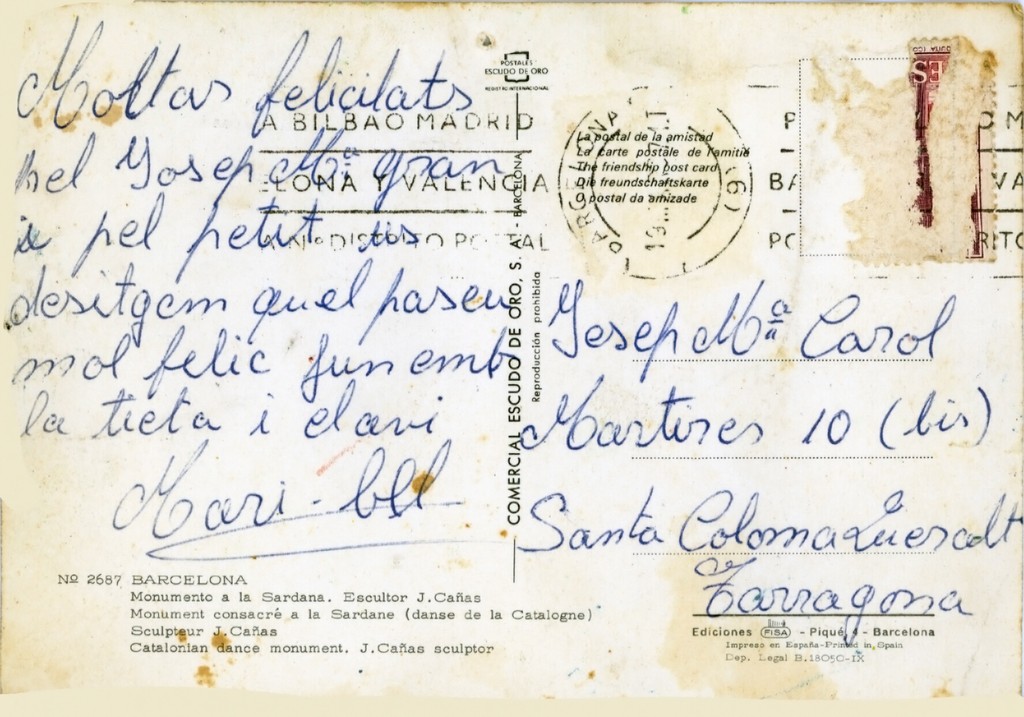 Moltas felicitats
pel Josep Mª gran
i pel petit us
desitgem quel paseu
mol felic junemb
la tieta i elavi
Mari-bel
POSTALES
ESCUDO DE ORO
REGISTRO INTERNACIONAL
A BILBAO MADRID
ELONA Y VALENCIA
Nº DISTRITO POSTAL
BARCELONA
La postal de la amistad
La carte postale de l'amitié
The friendship post card
Die freundschaftskarte
O postal da amizade
COMERCIAL ESCUDO DE ORO, S. A. - BARCELONA
Reproducción prohibida
Josep Mª Carol
Martires 10 (bis)
Santa Coloma Queralt
Tarragona
Nº 2687 BARCELONA
Monumento a la Sardana. Escultor J.Cañas
Monument consacré a la Sardane (danse de la Catalogne)
Sculpteur J.Cañas
Catalonian dance monument. J.Cañas sculptor
Ediciones FISA - Piqué, 4 - Barcelona
Impreso en España-Printed in Spain
Dep. Legal B.18050-IX